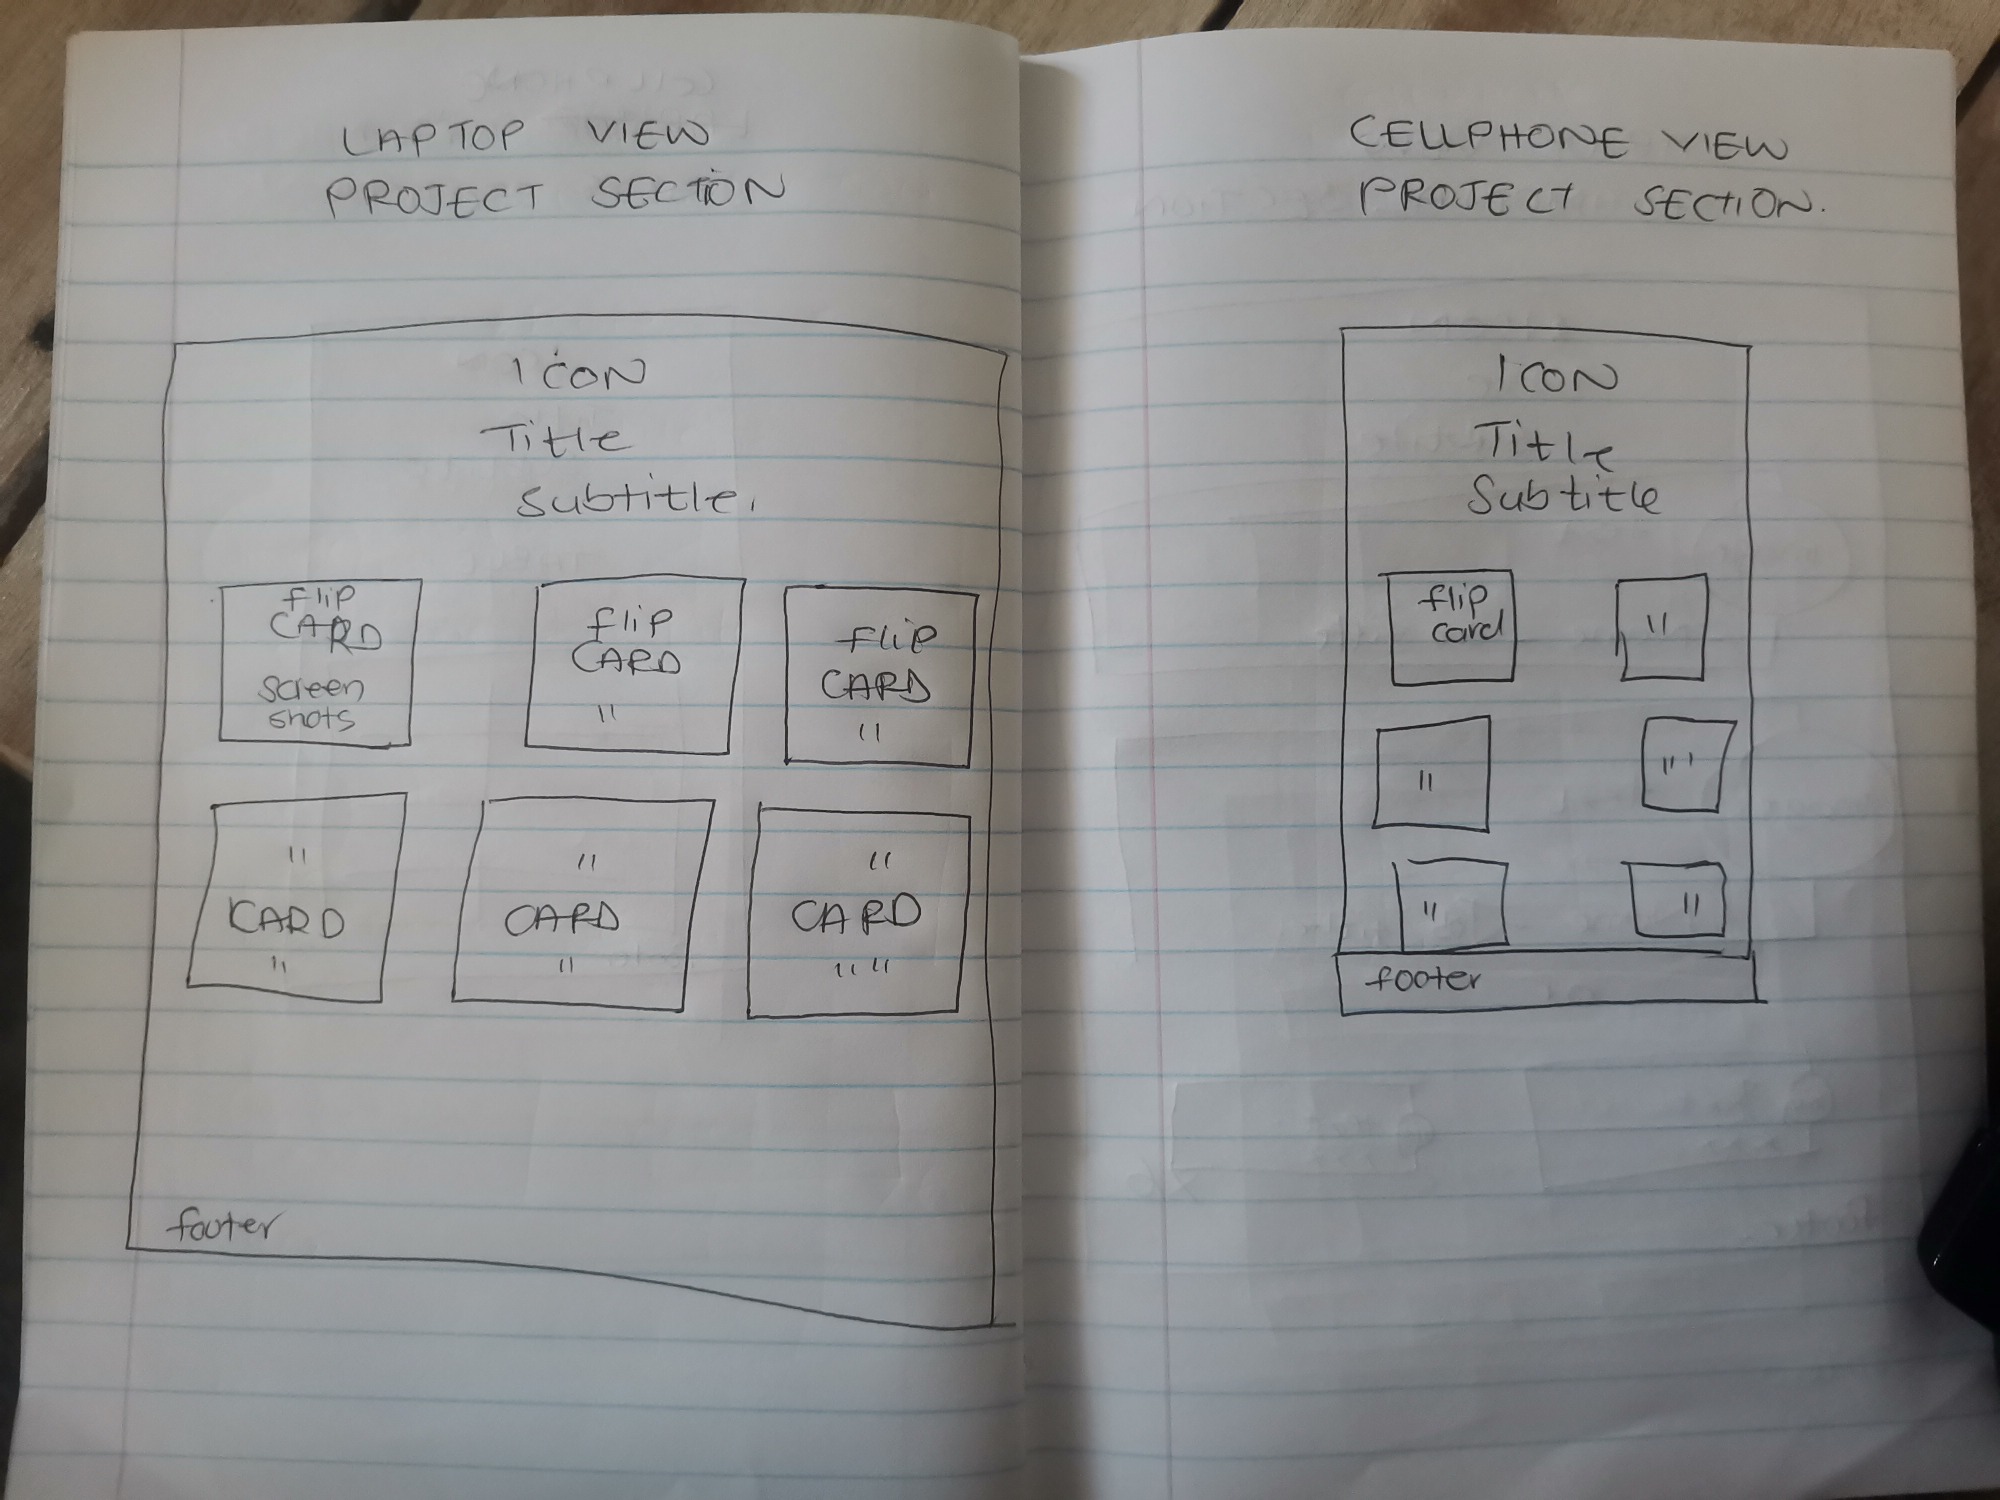 LAPTOP VIEW
PROJECT SECTION
ICON
Title
Subtitle.
flip
CARD
screen
shots
flip
CARD
"
flip
CARD
"
"
CARD
"
"
CARD
"
"
CARD
" "
footer
CELLPHONE VIEW
PROJECT SECTION.
ICON
Title
Subtitle
flip
card
"
"
"'
"
"
footer